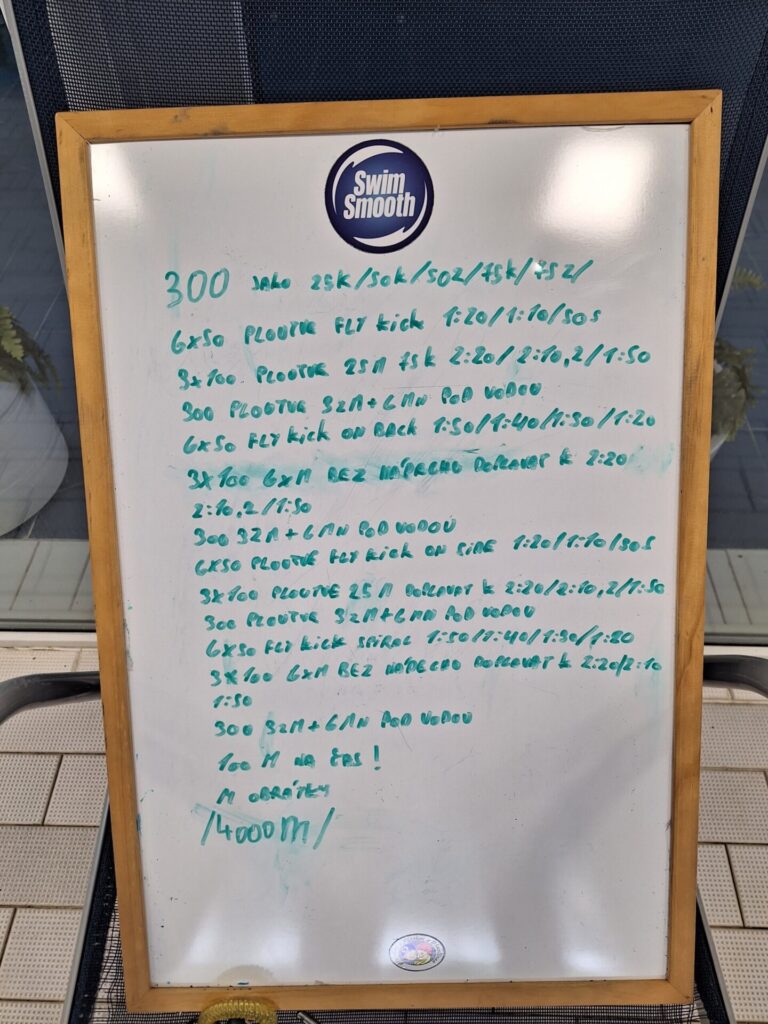 Swim
Smooth
300 JAKO 25K/50K/50Z/75K/75Z/
6x50 PLOUTVE FLY kick 1:20/1:10/50S
3x100 PLOUTVE 25M 75K 2:20/2:10,2/1:50
300 PLOUTVE 3ZM+6MN POD VODOU
6x50 FLY kick ON BACK 1:50/1:40/1:30/1:20
3x100 6xM BEZ NÁDECHU DOPLAVAT K 2:20
2:10,2/1:50
300 3ZM+6MN POD VODOU
6x50 PLOUTVE FLY kick ON SIDE 1:20/1:10/50S
3x100 PLOUTVE 25M DOPLAVAT K 2:20/2:10,2/1:50
300 PLOUTVE 3ZM+6MN POD VODOU
6x50 FLY kick SPIRAL 1:50/1:40/1:30/1:20
3x100 6xM BEZ NÁDECHU DOPLAVAT K 2:20/2:10
1:50
300 3ZM+6MN POD VODOU
100 M NA ČAS!
M OBRÁTKY
/4000m/